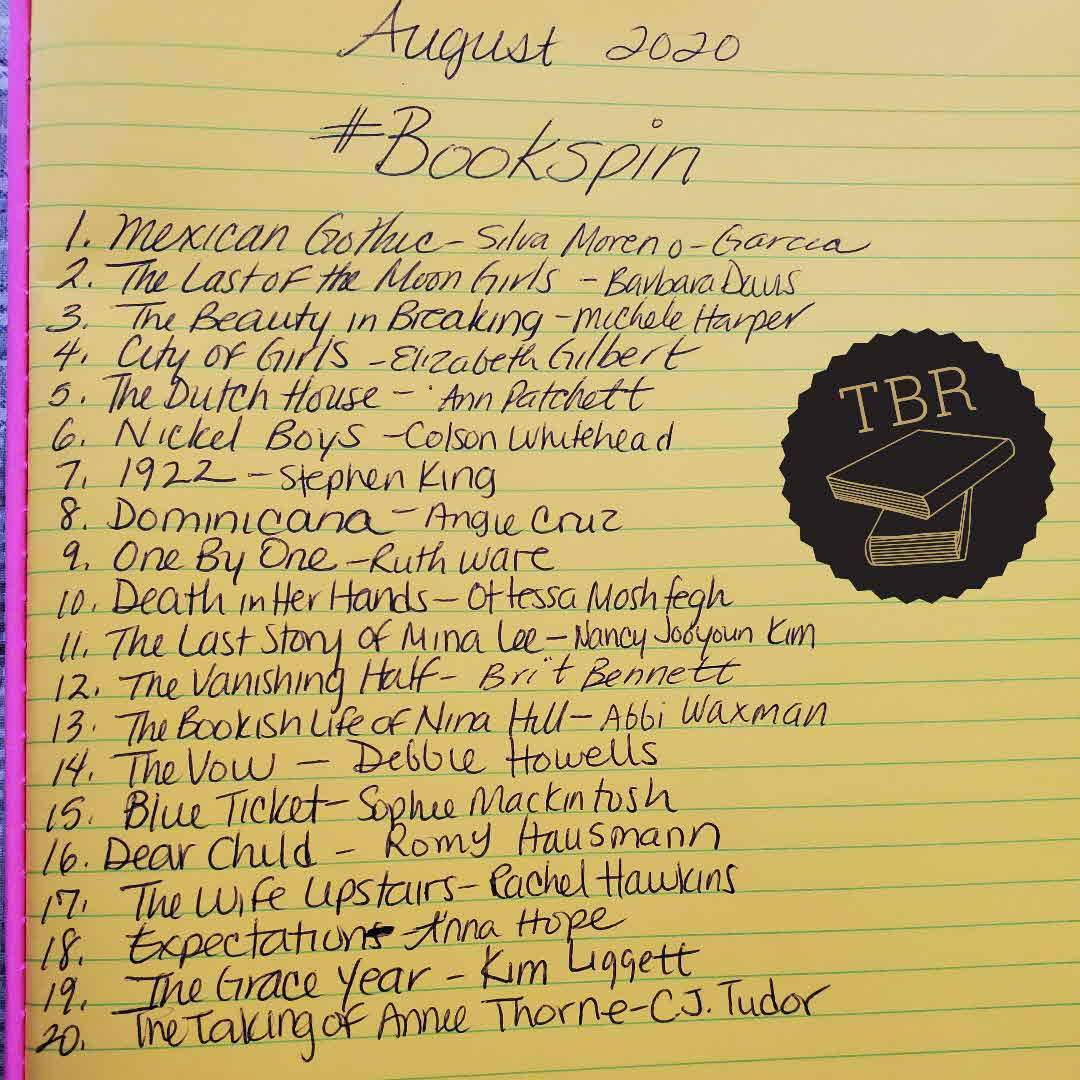 August 2020
#Bookspin
1. Mexican Gothic - Silva Moreno-Garcia
2. The Last of the Moon Girls - Barbara Davis
3. The Beauty in Breaking - Michele Harper
4. City of Girls - Elizabeth Gilbert
5. The Dutch House - Ann Patchett
TBR
6. Nickel Boys - Colson Whitehead
7. 1922 - Stephen King
8. Dominicana - Angie Cruz
9. One By One - Ruth Ware
10. Death in Her Hands - Ottessa Moshfegh
11. The Last Story of Mina Lee - Nancy Jooyoun Kim
12. The Vanishing Half - Brit Bennett
13. The Bookish Life of Nina Hill - Abbi Waxman
14. The Vow - Debbie Howells
15. Blue Ticket - Sophie Mackintosh
16. Dear Child - Romy Hausmann
17. The Wife Upstairs - Rachel Hawkins
18. Expectation - Anna Hope
19. The Grace Year - Kim Liggett
20. The Taking of Annie Thorne - C.J. Tudor